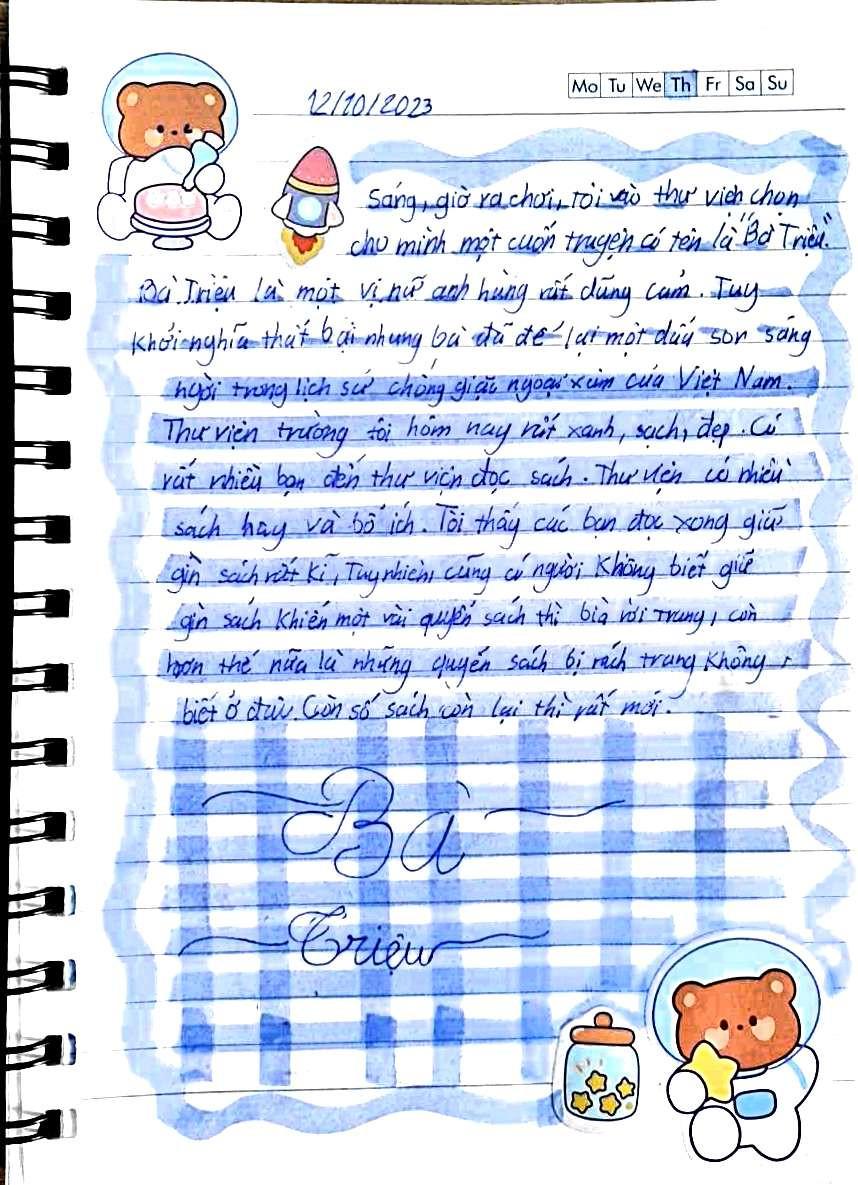 Mo Tu We Th Fr Sa Su
12/10/2023
Sáng, giờ ra chơi, tôi vào thư viện chọn
cho mình một cuốn truyện có tên là "Bà Triệu".
Bà Triệu là một vị nữ anh hùng rất dũng cảm. Tuy
khởi nghĩa thất bại nhưng bà đã để lại một dấu son sáng
ngời trong lịch sử chống giặc ngoại xâm của Việt Nam.
Thư viện trường tôi hôm nay rất xanh, sạch, đẹp. Có
rất nhiều bạn đến thư viện đọc sách. Thư viện có nhiều
sách hay và bổ ích. Tôi thấy các bạn đọc xong giữ
gìn sách rất kĩ, Tuy nhiên, cũng có người không biết giữ
gìn sách khiến một vài quyển sách thì bìa rời trang, còn
hơn thế nữa là những quyển sách bị rách trang không
biết ở đâu. Còn số sách còn lại thì rất mới.
Bà
Triệu